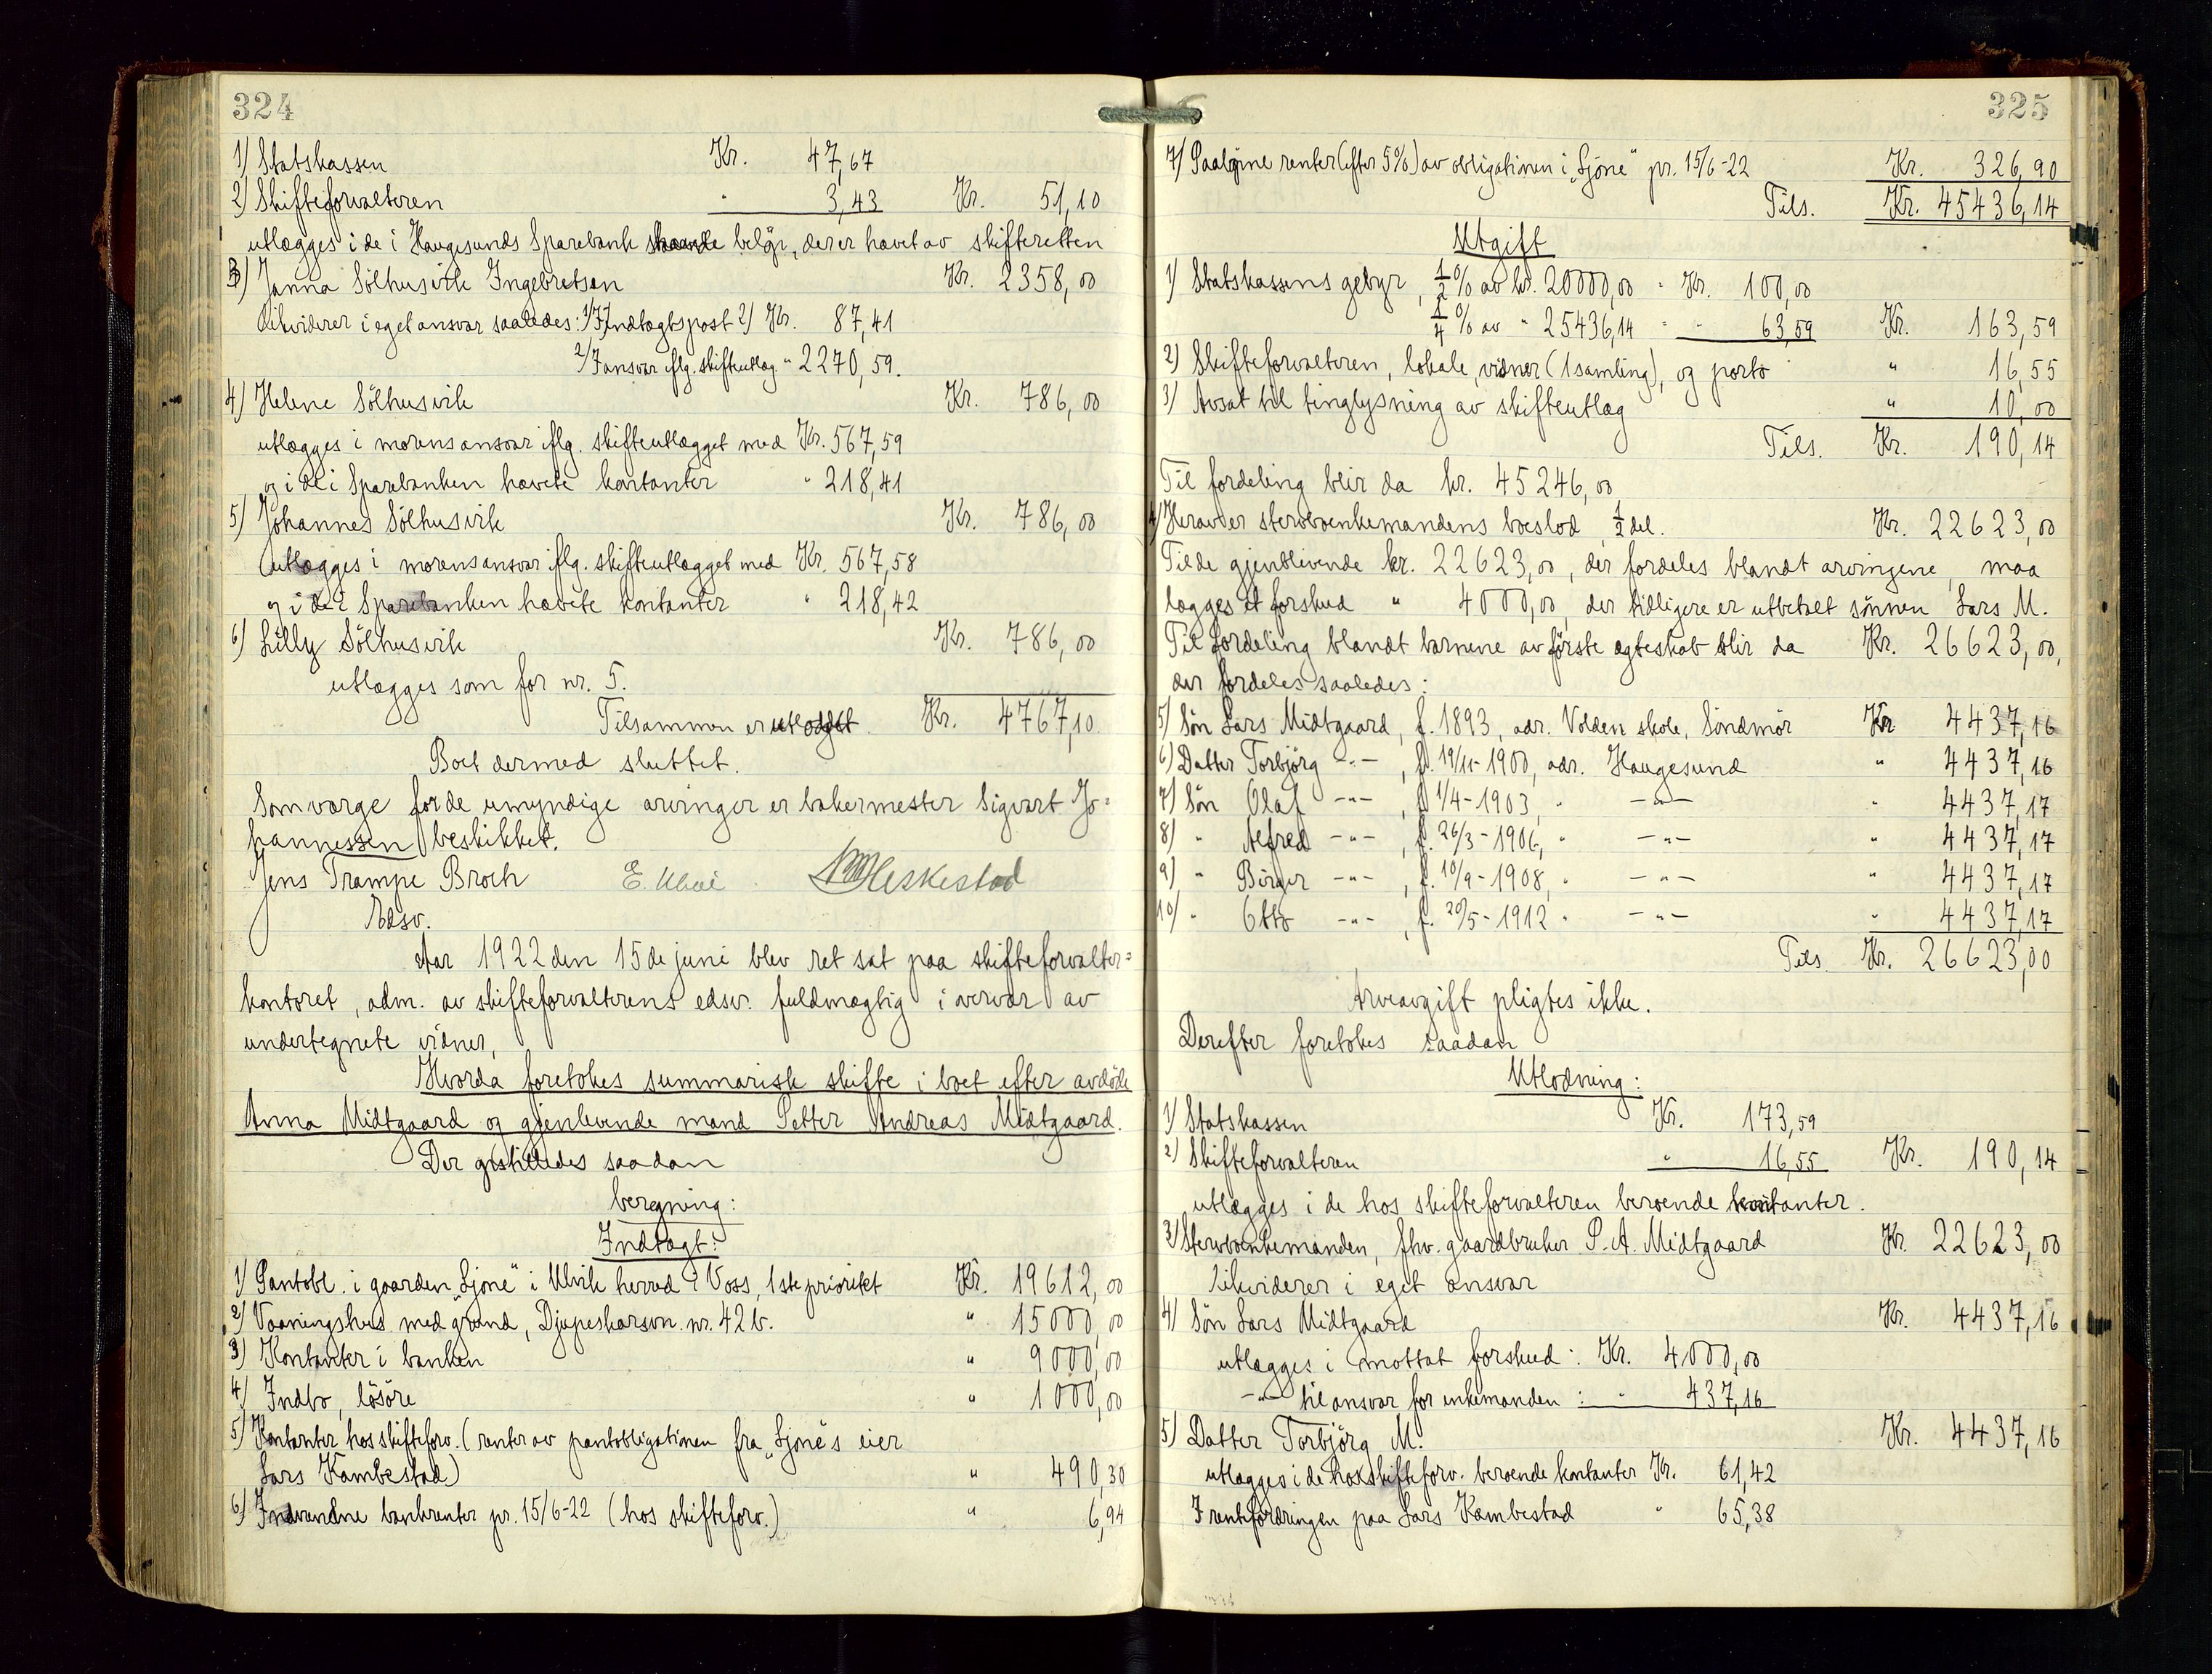 324
1) Statskassen Kr. 47,67
2) Skifteforvalteren " 3,43 Kr. 51,10
utlægges i de i Haugesunds Sparebank beløp, der er hævet av skifteretten
3) Janna Sölhusvik Ingebretsen Kr. 2358,00
likviderer i eget ansvar saaledes: 1) Indtægtspost 2) Kr. 87,41
2) I ansvar iflg. skifteutlæg " 2270,59.
4) Helene Sölhusvik Kr. 786,00
utlægges i morens ansvar iflg. skifteutlægget med Kr. 567,59
og i de i Sparebanken hævete kontanter " 218,41
5) Johannes Sölhusvik Kr. 786,00
utlægges i morens ansvar iflg. skifteutlægget med Kr. 567,58
og i de i Sparebanken hævete kontanter " 218,42
6) Lilly Sölhusvik Kr. 786,00
utlægges som for nr. 5.
Tilsammen er utlagt Kr. 4767,10
Boet dermed sluttet.
Som værge for de umyndige arvinger er bakermester Sigvart Jo=
hannessen beskikket.
Jens Trampe Broch E. Heskestad
Edsv.
Aar 1922 den 15de juni blev ret sat paa skifteforvalter=
kontoret, adm. av skifteforvalterens edsv. fuldmægtig i overvær av
undertegnete vidner,
Hvorda foretokes summarisk skifte i boet efter avdöde
Anna Midtgaard og gjenlevende mand Petter Andreas Midtgaard.
Der opstilledes saadan
beregning:
Indtægt:
1) Pantobl. i gaarden "Ljone" i Ulvik herred i Voss, 1ste prioritet Kr. 19612,00
2) Vaaningshus med grund, Djupeskarsvn. nr. 42 b. " 15000,00
3) Kontanter i banken " 9000,00
4) Indbo, lösöre " 1000,00
5) Kontanter hos skifteforv. (renter av pantobligationen fra "Ljone"s eier
Lars Kambestad) " 490,30
6) Indvundne bankrenter pr. 15/6-22 (hos skifteforv.) " 6,94
325
7) Paalöpne renter (efter 5%) av obligationen i "Ljone" pr. 15/6-22 Kr. 326,90
Tils. Kr. 45436,14
Utgift
1) Statskassens gebyr, 1/2 % av kr. 20000,00 = Kr. 100,00
1/4 % av " 25436,14 = " 63,59 Kr. 163,59
2) Skifteforvalteren, lokale, vidner (1 samling), og porto " 16,55
3) Avsat til tinglysning av skifteutlæg " 10,00
Tils. Kr. 190,14
Til fordeling blir da kr. 45246,00
4) Herav er stervboenkemandens boeslod, 1/2 del. Kr. 22623,00
Til de gjenblivende kr. 22623,00, der fordeles blandt arvingene, maa
lægges et forskud " 4000,00, der tidligere er utbetalt sönnen Lars M.
Til fordeling blandt barnene av første egteskab blir da Kr. 26623,00,
der fordeles saaledes:
5) Sön Lars Midtgaard, f. 1893, adr. Volden skole, Söndmör Kr. 4437,16
6) Datter Torbjörg -"-, f. 19/11-1900, adr. Haugesund " 4437,16
7) Sön Olaf -"-, f. 1/4-1903, " -"- " 4437,17
8) " Alfred -"-, f. 26/3-1906, " -"- " 4437,17
9) " Börger -"-, f. 10/9-1908, " -"- " 4437,17
10) " Otto -"-, f. 20/5-1912 " -"- " 4437,17
Tils. Kr. 26623,00
Arveavgift pligtes ikke.
Derefter foretokes saadan
Utlodning:
1) Statskassen Kr. 173,59
2) Skifteforvalteren " 16,55 Kr. 190,14
utlægges i de hos skifteforvalteren beroende kontanter.
3) Stervboenkemanden, fhv. gaardbruker P. A. Midtgaard Kr. 22623,00
likviderer i eget ansvar
4) Sön Lars Midtgaard Kr. 4437,16
utlægges i mottat forskud: Kr. 4000,00
-"- til ansvar for enkemanden: " 437,16
5) Datter Torbjörg M. Kr. 4437,16
utlægges i de hos skifteforv. beroende kontanter Kr. 61,42
I rentefordringen paa Lars Kambestad " 65,38